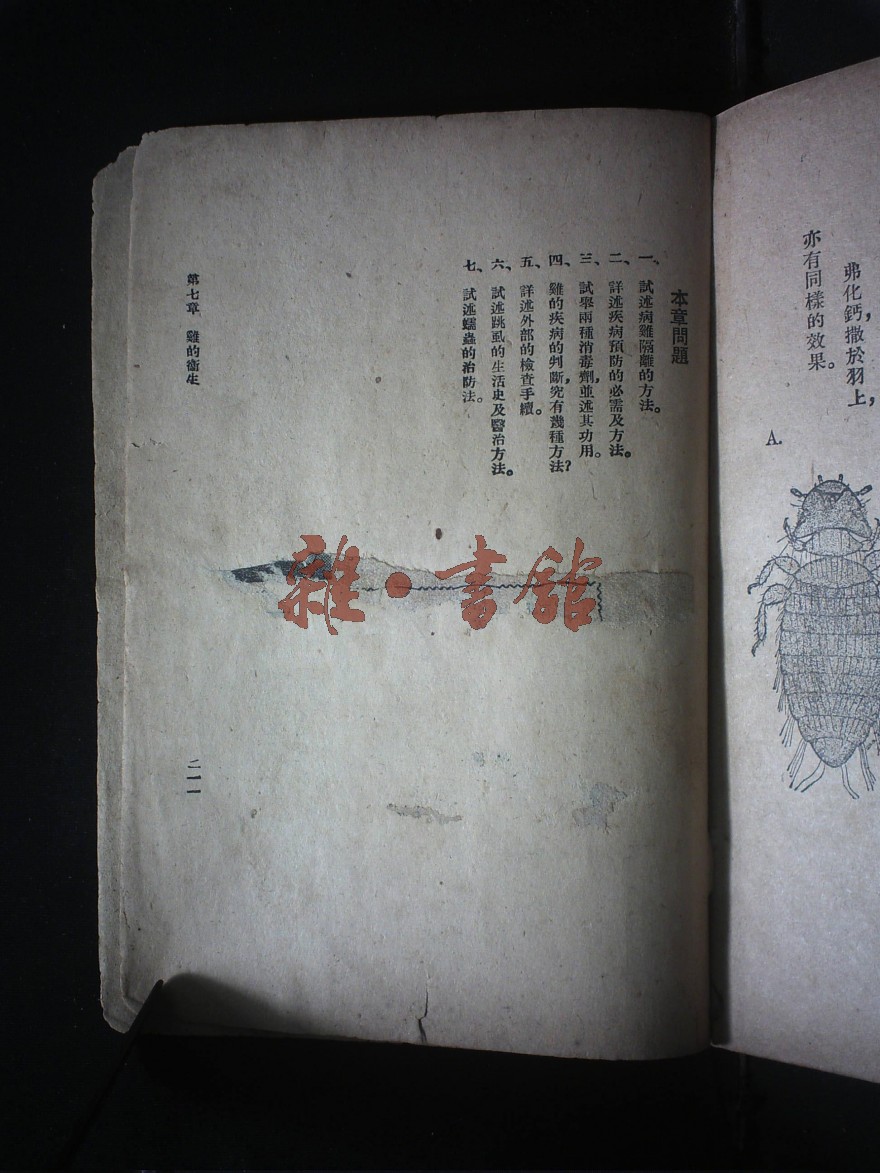 弗化鈣，撒於羽上，
亦有同樣的效果。
A.
本章問題
一、試述病雞隔離的方法。
二、詳述疾病預防的必需及方法。
三、試舉兩種消毒劑，並述其功用。
四、雞的疾病的判斷，究有幾種方法？
五、詳述外部的檢查手續。
六、試述跳虱的生活史及醫治方法。
七、試述蠕蟲的治防法。
第七章　雞的衛生
二一一
雜·書館